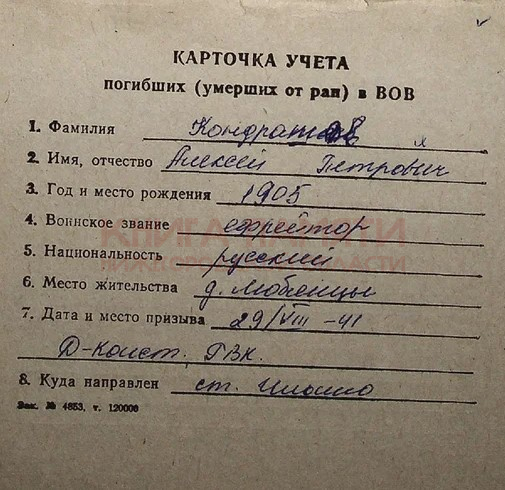 КАРТОЧКА УЧЕТА
погибших (умерших от ран) в ВОВ
1. Фамилия
2. Имя, отчество Алексей Петрович
3. Год и место рождения 1905
4. Воинское звание ефрейтор
КНИГА ПАМЯТИ
5. Национальность русский
НИЖЕГОРОДСКОЙ ОБЛАСТИ
6. Место жительства д.
7. Дата и место призыва 29/VIII-41
Д-Конст. РВК.
8. Куда направлен ст.
Зак. № 4853, т. 120000